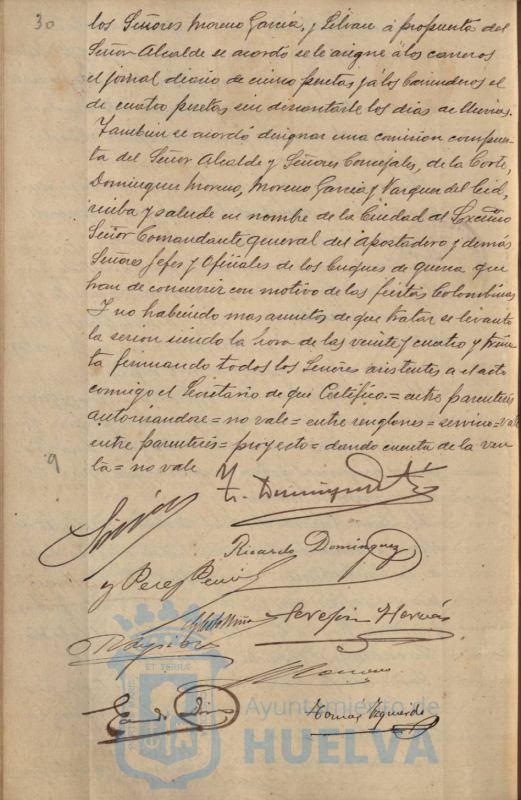 30
los Señores Moreno García, y Silvan á propuesta del
Señor Alcalde se acordó se le asigne á los carreros
el jornal diario de cinco pesetas y á los barrenderos el
de cuatro pesetas sin descontarle los días de lluvias.
Tambien se acordó designar una comision compues-
ta del Señor Alcalde y Señores Concejales, de la Corte,
Dominguez Moreno, Moreno García y Vazquez del Cid,
reciba y salude en nombre de la Ciudad al Excmo
Señor Comandante general del apostadero y demás
Señores Jefes y Oficiales de los buques de guerra que
han de concurrir con motivo de las fiestas Colombinas
Y no habiendo mas asuntos de que tratar se levantó
la sesion siendo la hora de las veinte y cuatro y trein
ta firmando todos los Señores asistentes a el acto
conmigo el Secretario de que Certifico.= entre parentesis
autorizandose = no vale = entre renglones = servicio = vale
entre parentesis = proyecto = dando cuenta de la ven
ta = no vale
9
Ricardo Dominguez
y Perez
Serefin Hervás
Moreno
Tomas Izquierdo
ET TERRÆ
Ayuntamiento de
HUELVA